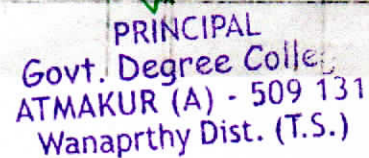 PRINCIPAL
Govt. Degree Colle
ATMAKUR (A) - 509 131
Wanaprthy Dist. (T.S.)